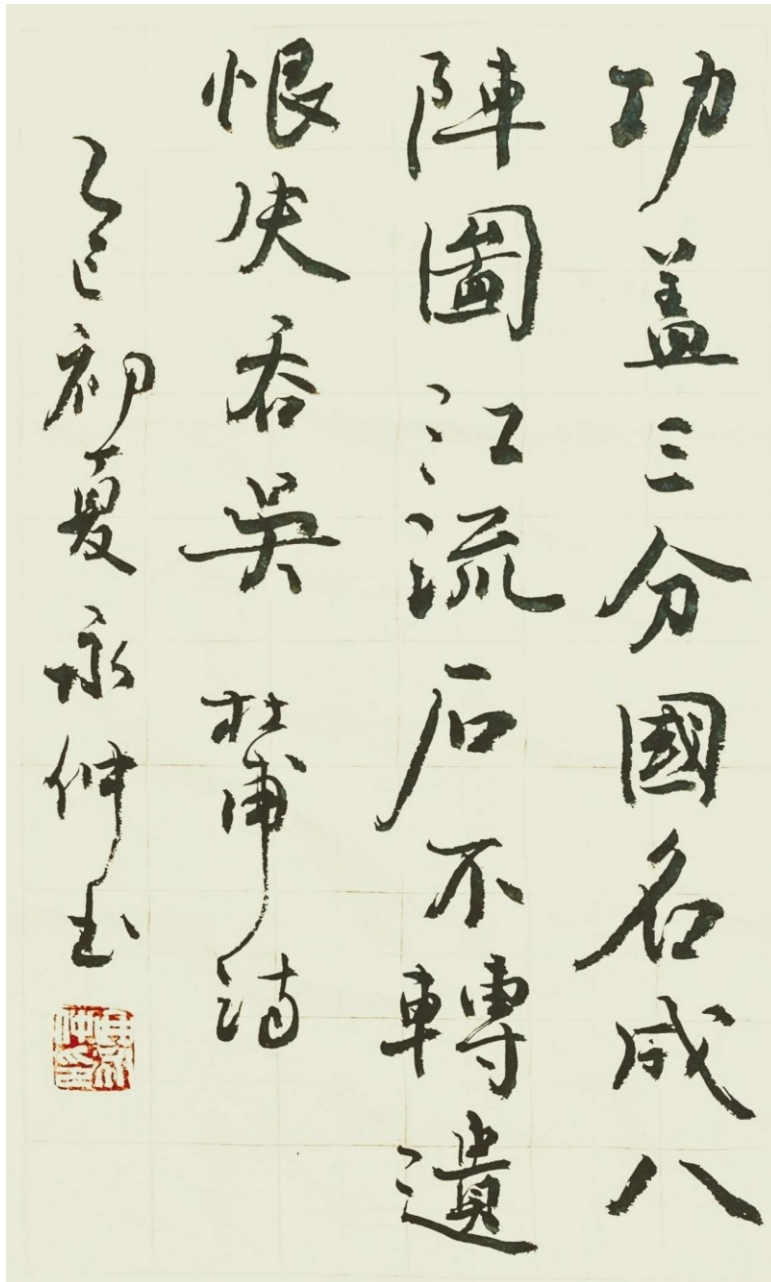 功盖三分國名成八
陣圖江流石不轉遺
恨失吞吳 杜甫詩
乙巳初夏永仲书